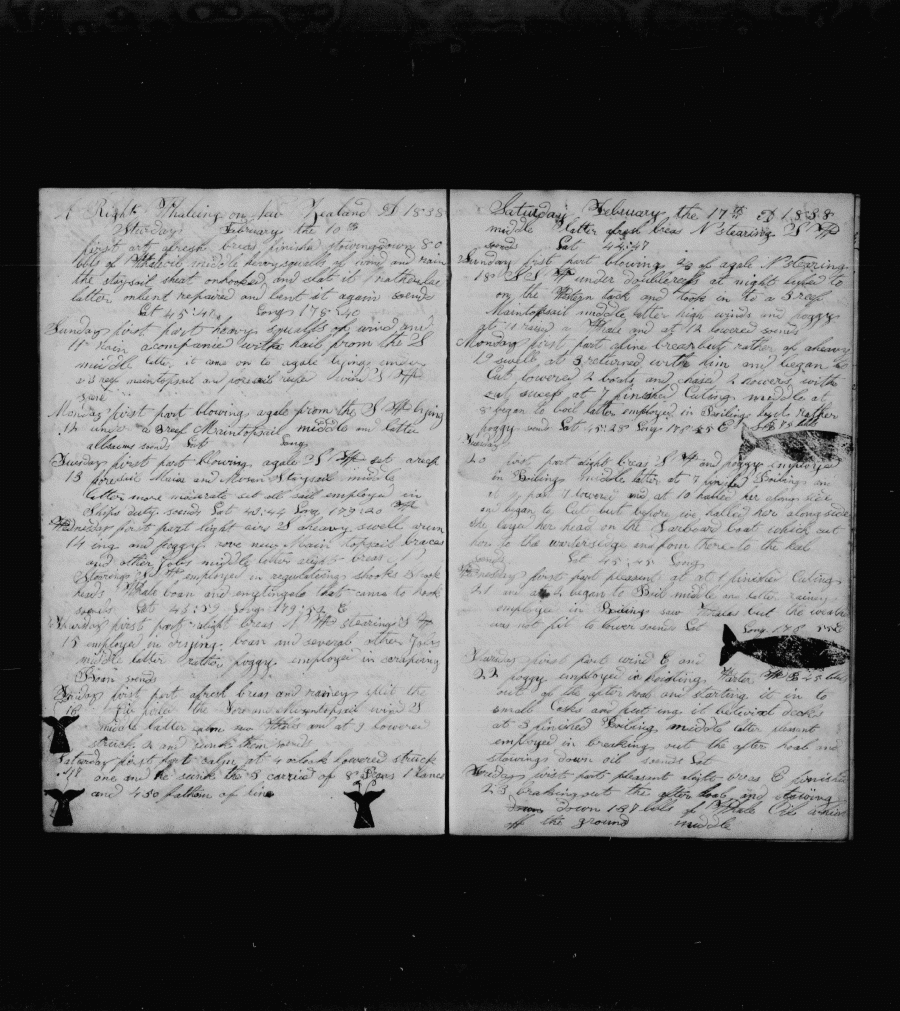 A Right Whaleing on New Zealand AD 1838
Saturday February the 10th
first part afresh breas finishd stowing down 80
bbls of Whaleoil middle heavy squalls of wind and rain
the staysail sheat and slat it
latter onbent repaired and bent it again sounds
Lat 45:41 Long 178:40
Sunday first part heavy squalls of wind and
11 Rain acompanied withe hail from the S
middle latter it came on to agale lying under
a 3 reef maintopsail and foresail wind S W
Monday first part blowing agale from the S W lying
12 under a 3 reef Maintopsail middle and latter
allsaims sounds Lat Long
Tuesday first part blowing agale S W set areef
13 foresail Main and Mosen Staysail middle
latter more moderate set all sail employed in
Ships duty sounds Lat 45:44 Long 179:20 W
Wednesday first part light airs S aheavy swell
14 ing and foggy rove new Main topsail braces
and other Jobs middle latter slight breas
Stearing S W employed in regulateing shooks & cask
heads Whale boan and that came to hook
sounds Lat 45:59 Long 179:59 E
Thursday first part slight breas N W stearing S W
15 employed in drying boan and several other Jobs
middle latter rather foggy employed in scraping
Boan sounds
Friday first part afresh breas and rainey split the
16 the Foremantopsail wind S
middle latter calm saw Whale and at 9 lowered
struck 2 and sunk them sounds
Saturday first part calm at 4 oclock lowered struck
17 one and he sunk the 3 carried of 8 Irons 1 lance
and 450 fathom of line
Saturday February the 17th AD 1838
middle latter afresh breas N stearing S W
sounds Lat 44:47
Sunday first part blowing ½ of agale N stearing
18 S S W under doublereefs at night luved to
on the Western tack and took in to a 3 reef
Maintopsail middle latter high winds and foggy
at 11 raised a Whale and at 12 lowered sounds
Monday first part afine breas but rather of aheavy
19 swell at 3 returned with him and began to
Cut lowered 2 boats and chased 2 howers withe
out sucess at 7 finished Cuting middle at
8 began to boil latter employed in Boiling rather
foggy sounds Lat 45:28 Long 178:55 E
Tuesday
20 first part slight breas S W and foggy employed
in Boiling middle latter at 7 finished Boiling an
at 9 lowered and at 10 hailed her along side
and began to Cut but before we hailed her along side
she layed her head on the Larboard boat which cut
her to the watersedge and from there to the keel
sounds Lat 45:45 Long
Wednesday first part pleasent at 1 finished Cuting
21 and at 2 began to Boil middle an latter rainey
employed in Boiling saw Whales but the weather
was not fit to lower sounds Lat Long 178:55 E
Thursday first part wind E and
22 foggy employed in boiling latter
out of the after hoal and starting it in to
small Casks and puting it between decks
at 3 finished Boiling middle latter pleasent
employed in breaking out the after hoal an
stowing down oil sounds Lat
Friday first part pleasent slight breas E finished
23 braking out the after hoal and stowing
down 187 bbls of Whale Oil
off the ground middle